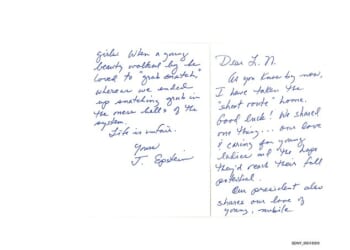 Dear L.N.
As you know by now,
I have taken the
"short route" home.
Good luck! We shared
one thing... our love
& caring for young
ladies and the hope
they'd reach their full
potential.
Our president also
shares our love of
young, nubile
girls. When a young
beauty walked by he
loved to "grab snatch,"
whereas we ended
up snatching grub in
the mess halls of the
system.
Life is unfair.
Yours
J. Epstein